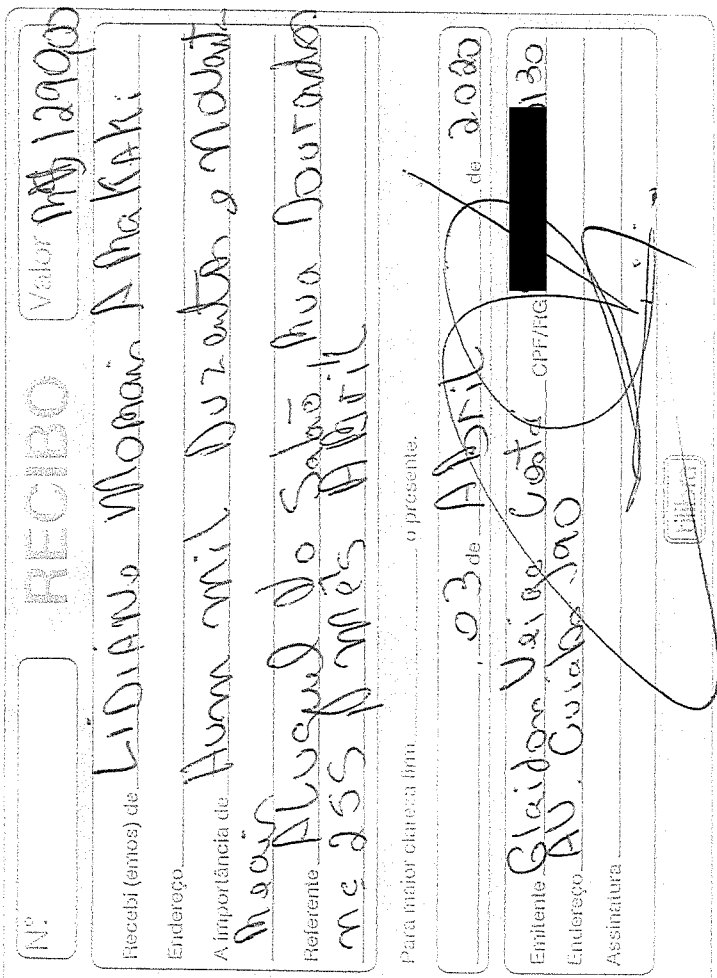 Nº RECIBO Valor R$ 1290,00
Recebi (emos) de LIDIANE Morais AhaKAKi
Endereço
A importância de Hum mil Duzentos e Novent
Reais
Referente ALuguel do Salão Rua Dourados
nc 255 p mês ABril
Para maior clareza firm o presente.
03 de ABril de 2020
Emitente Glaidon Veiga Costa CPF/RG 130
Endereço AV. Cuiabá 190
Assinatura